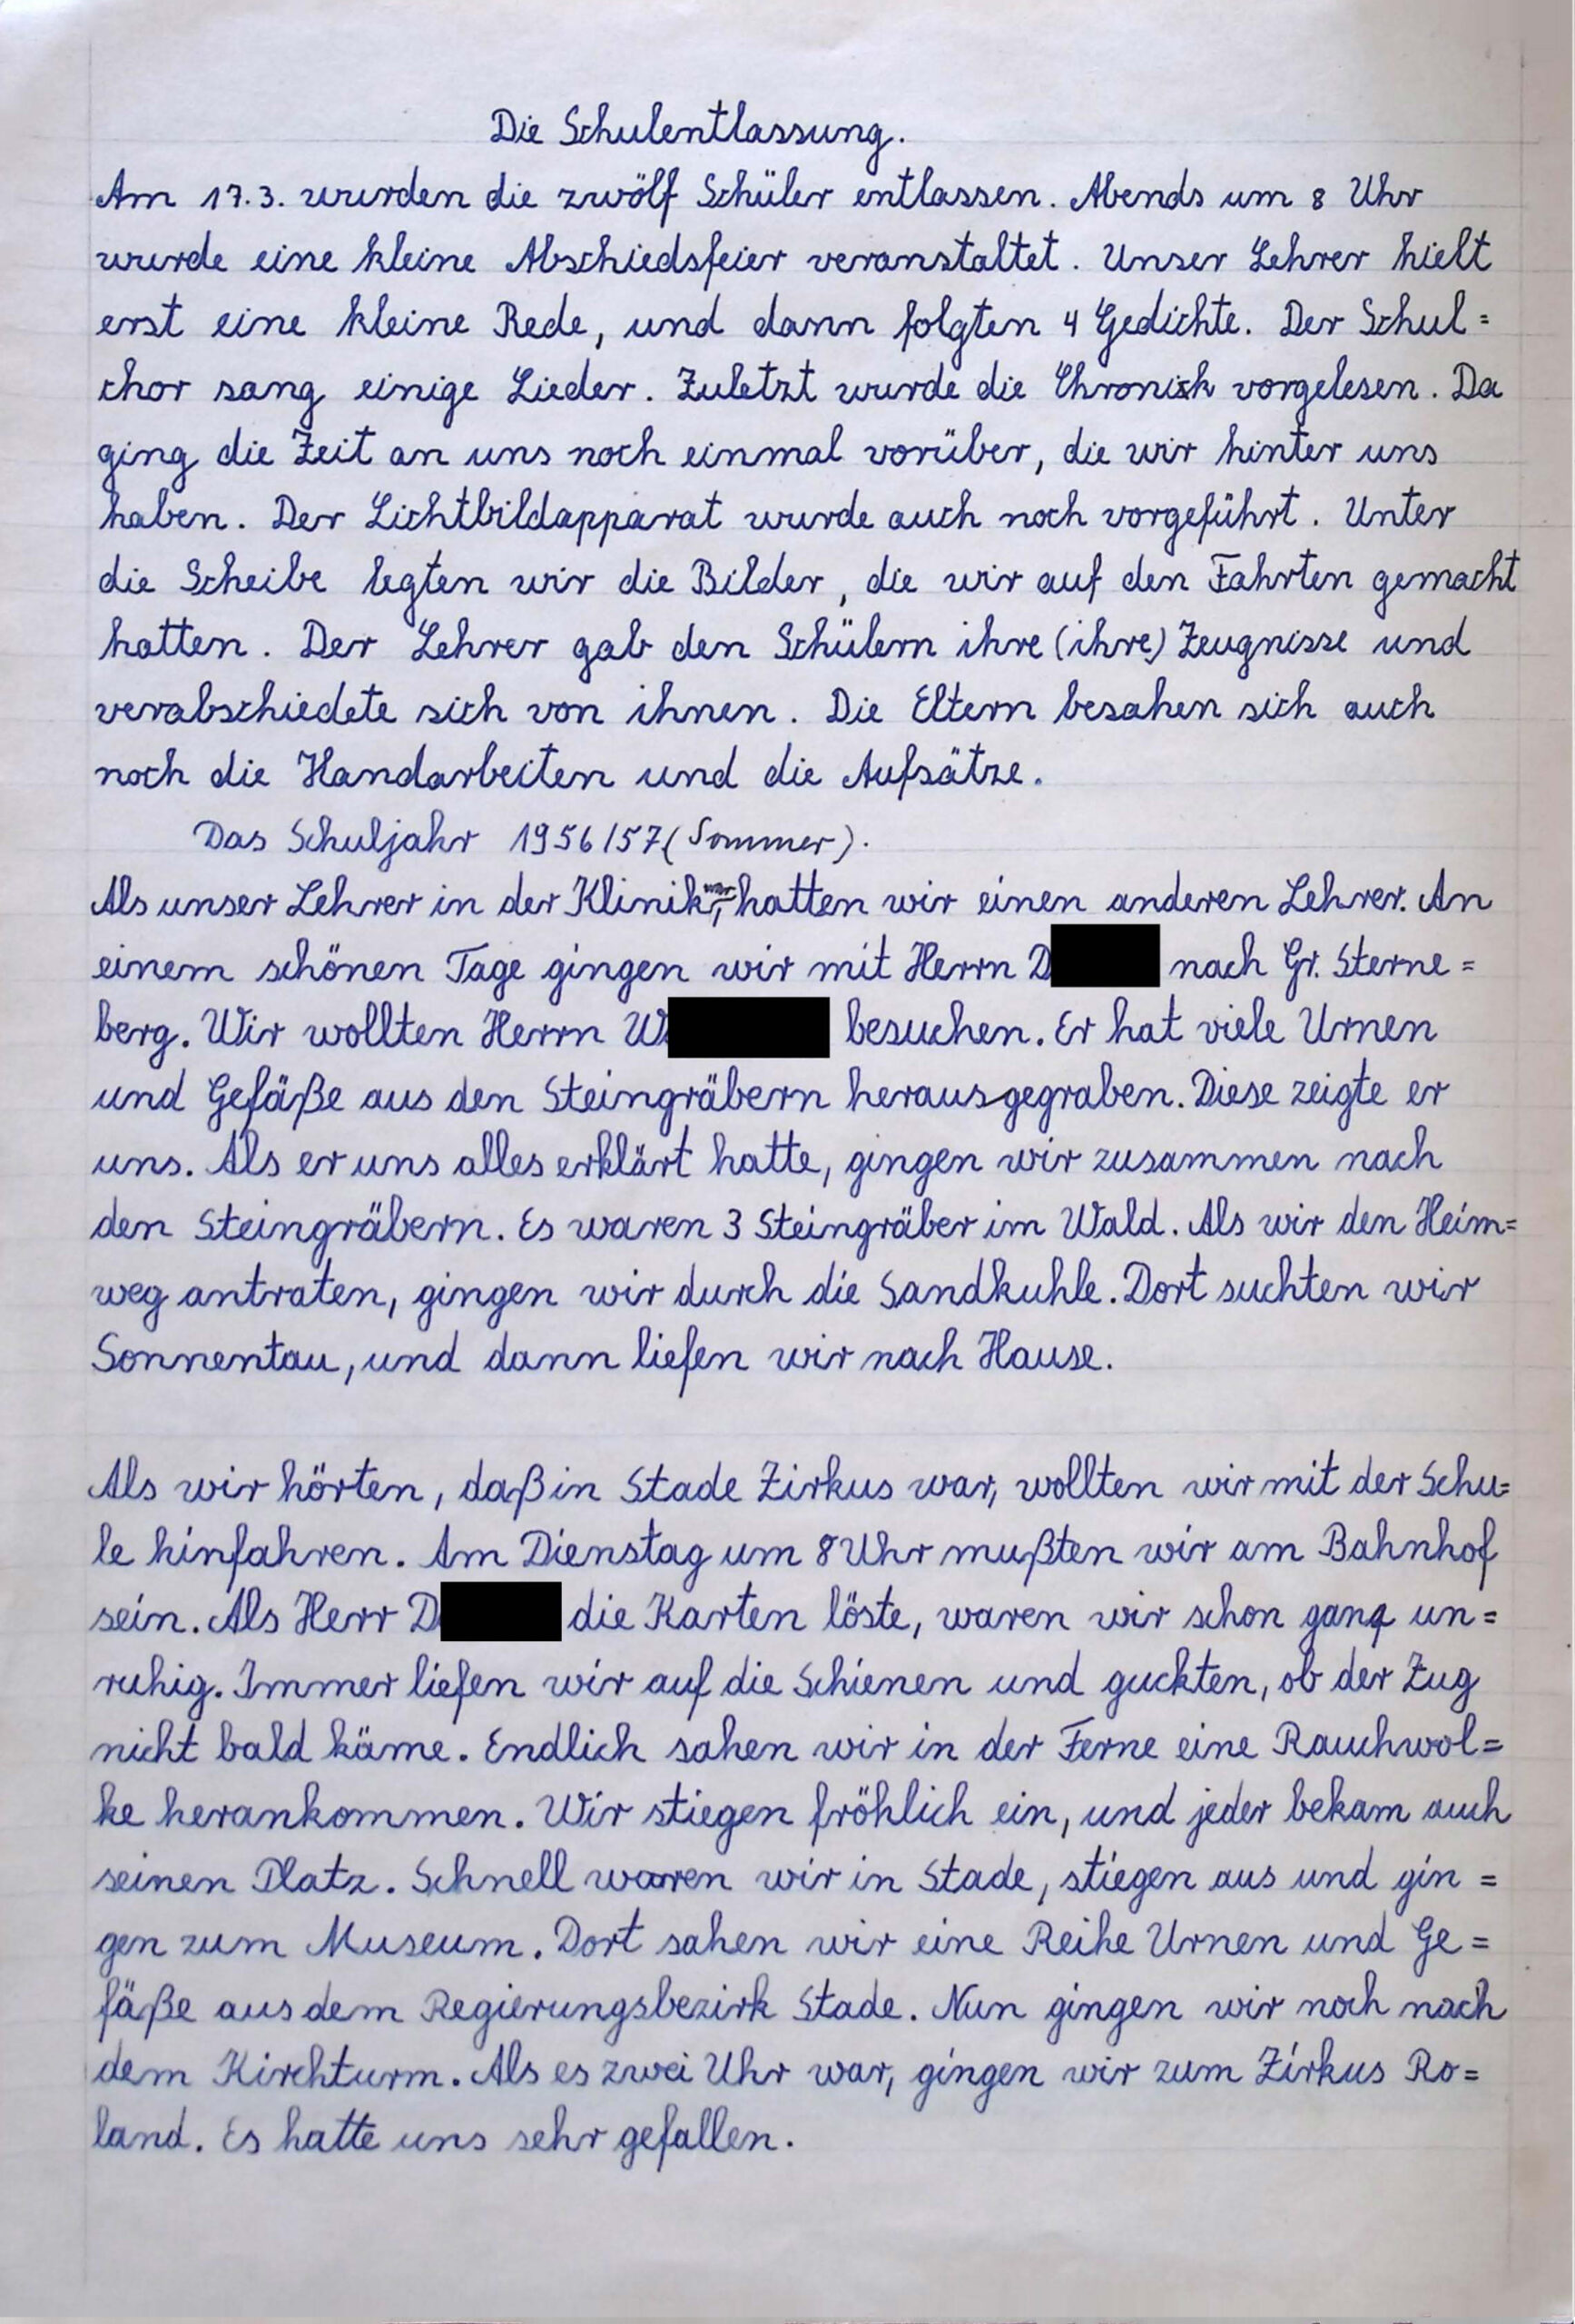 Die Schulentlassung.
Am 17.3. wurden die zwölf Schüler entlassen. Abends um 8 Uhr
wurde eine kleine Abschiedsfeier veranstaltet. Unser Lehrer hielt
erst eine kleine Rede, und dann folgten 4 Gedichte. Der Schul=
chor sang einige Lieder. Zuletzt wurde die Chronik vorgelesen. Da
ging die Zeit an uns noch einmal vorüber, die wir hinter uns
haben. Der Lichtbildapparat wurde auch noch vorgeführt. Unter
die Scheibe legten wir die Bilder, die wir auf den Fahrten gemacht
hatten. Der Lehrer gab den Schülern ihre (ihre) Zeugnisse und
verabschiedete sich von ihnen. Die Eltern besahen sich auch
noch die Handarbeiten und die Aufsätze.
Das Schuljahr 1956/57 (Sommer).
Als unser Lehrer in der Klinik war, hatten wir einen anderen Lehrer. An
einem schönen Tage gingen wir mit Herrn D nach Gr. Sterne=
berg. Wir wollten Herrn W besuchen. Er hat viele Urnen
und Gefäße aus den Steingräbern herausgegraben. Diese zeigte er
uns. Als er uns alles erklärt hatte, gingen wir zusammen nach
den Steingräbern. Es waren 3 Steingräber im Wald. Als wir den Heim=
weg antraten, gingen wir durch die Sandkuhle. Dort suchten wir
Sonnentau, und dann liefen wir nach Hause.
Als wir hörten, daß in Stade Zirkus war, wollten wir mit der Schu=
le hinfahren. Am Dienstag um 8 Uhr mußten wir am Bahnhof
sein. Als Herr D die Karten löste, waren wir schon ganz un=
ruhig. Immer liefen wir auf die Schienen und guckten, ob der Zug
nicht bald käme. Endlich sahen wir in der Ferne eine Rauchwol=
ke herankommen. Wir stiegen fröhlich ein, und jeder bekam auch
seinen Platz. Schnell waren wir in Stade, stiegen aus und gin=
gen zum Museum. Dort sahen wir eine Reihe Urnen und Ge=
fäße aus dem Regierungsbezirk Stade. Nun gingen wir noch nach
dem Kirchturm. Als es zwei Uhr war, gingen wir zum Zirkus Ro=
land. Es hatte uns sehr gefallen.